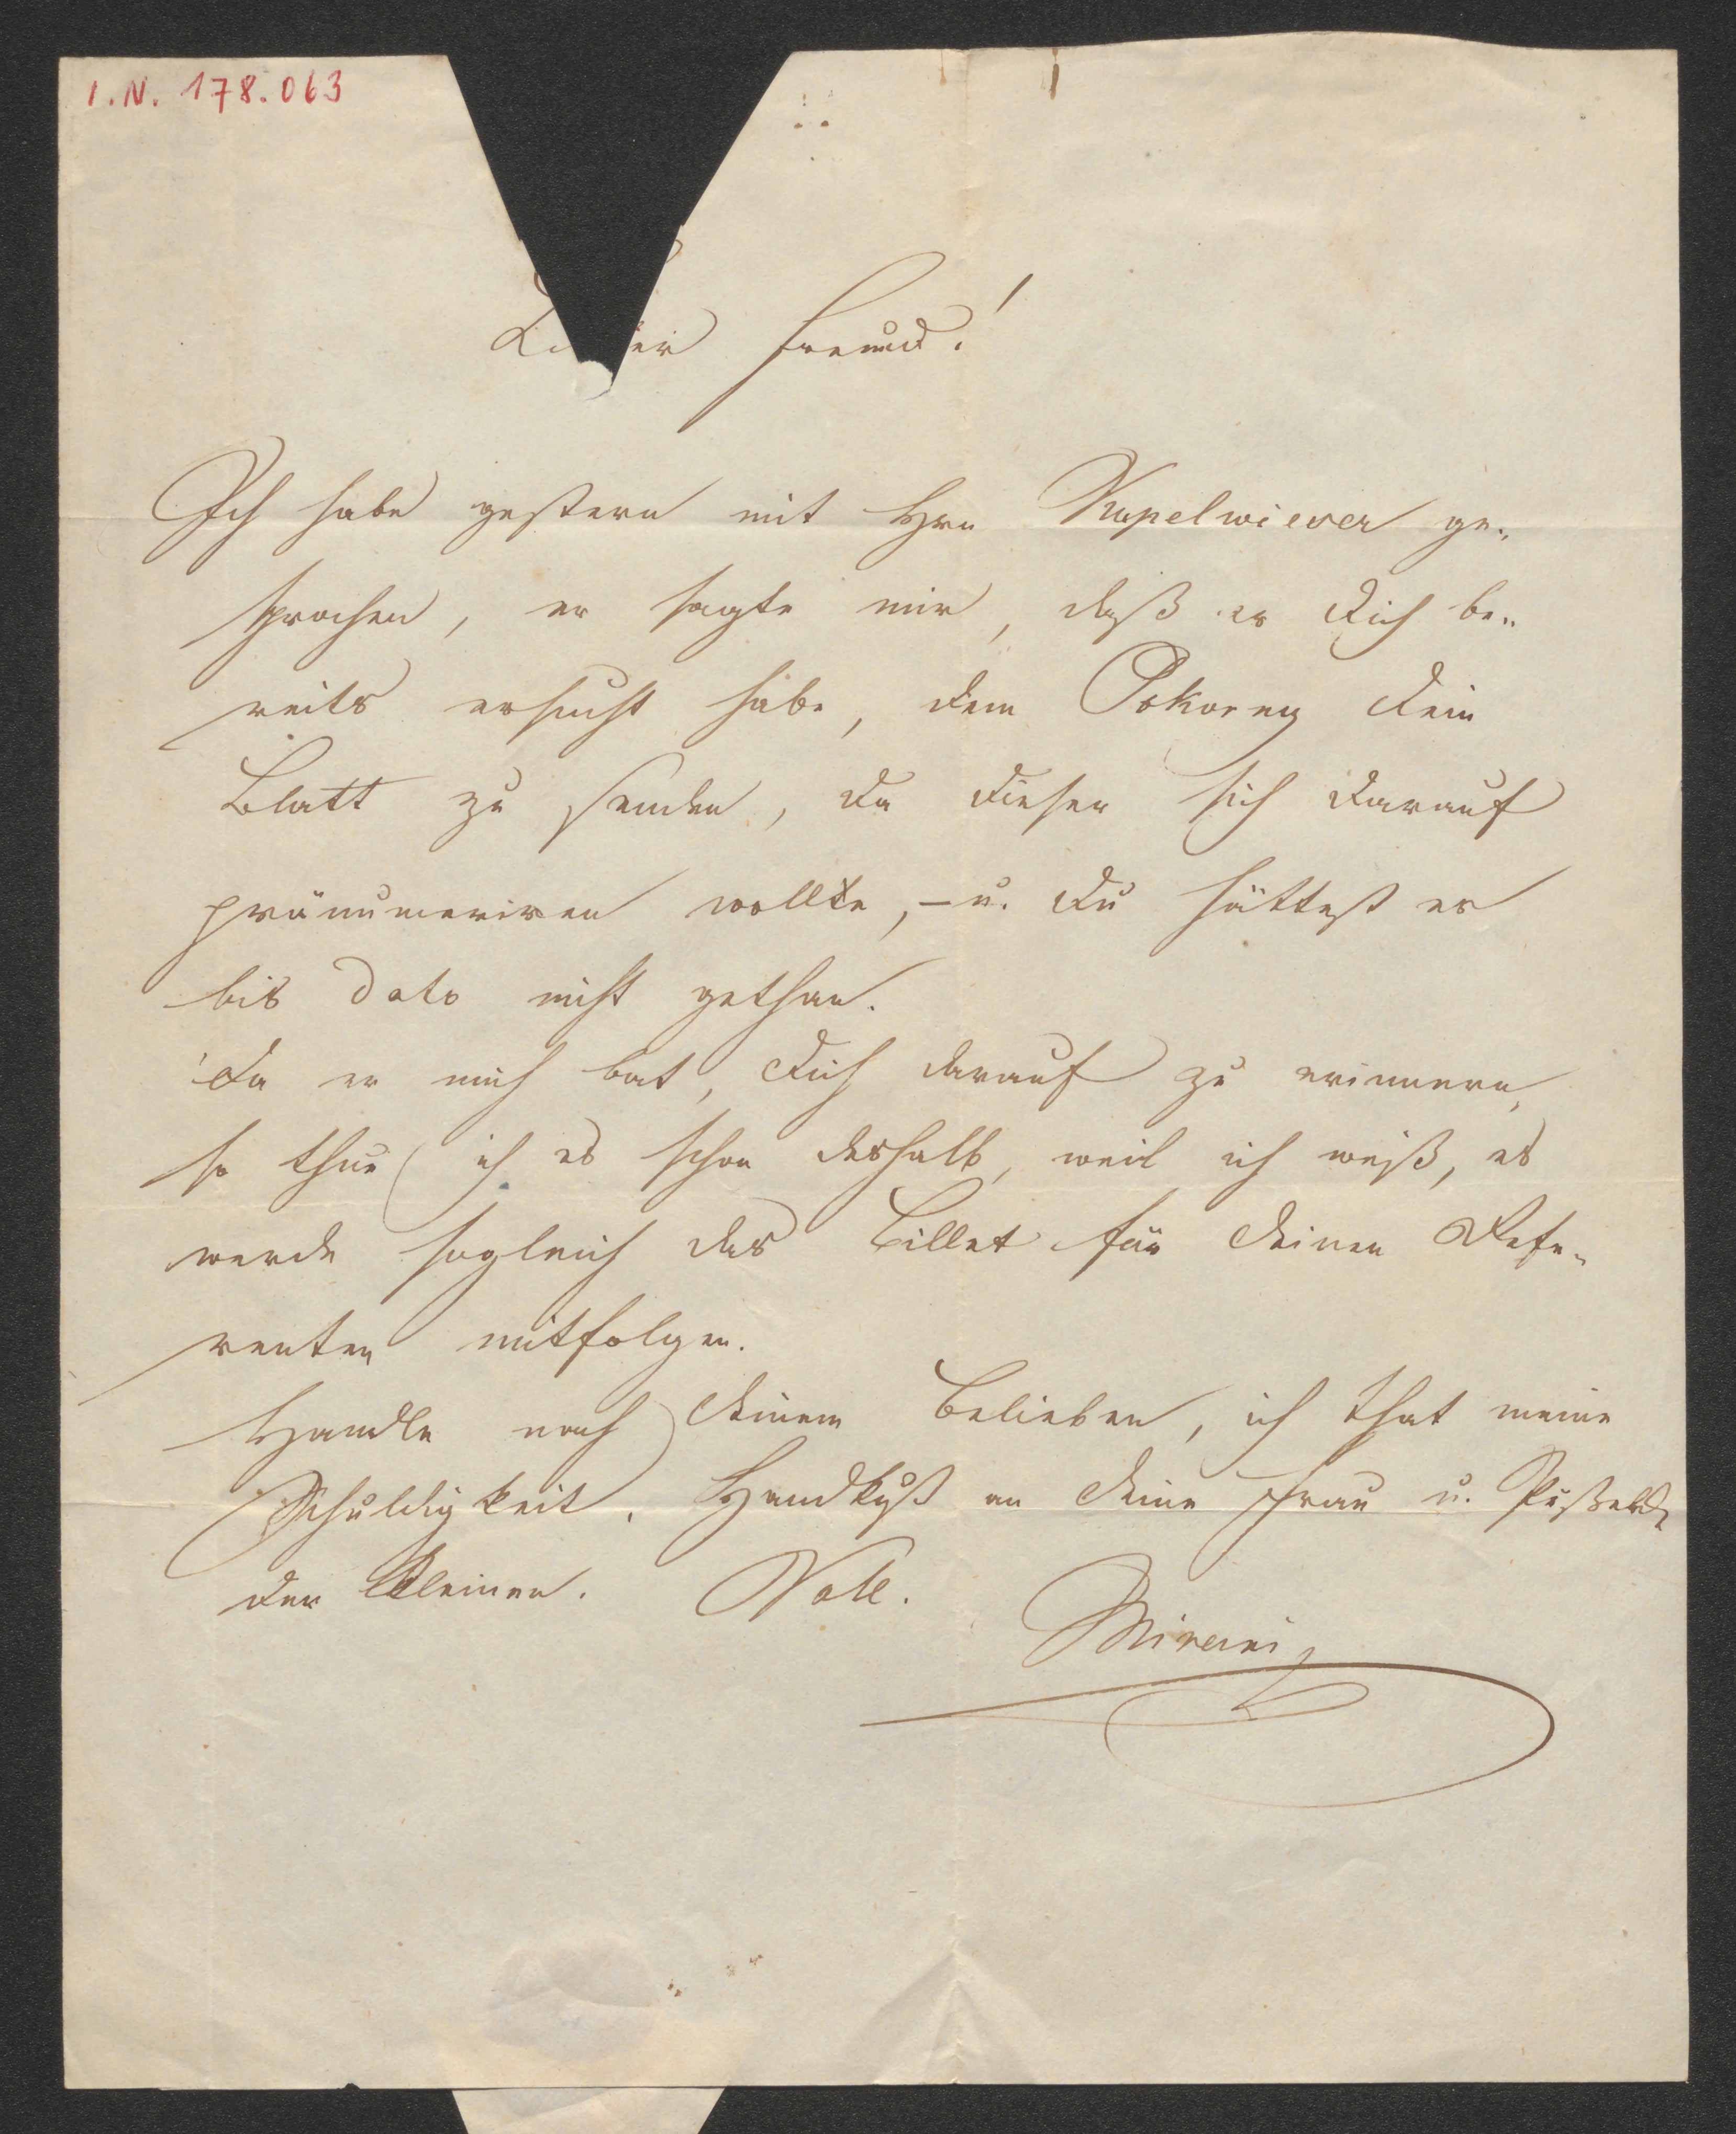 I.N. 178.063
Lieber Freund!
Ich habe gestern mit Hrn Kupelwieser ge„
sprochen, er sagte mir, daß er Dich be„
reits ersucht habe, dem Pokorny Dein
Blatt zu senden, da dieser sich darauf
pränumeriren wollte, – u. Du hättest es
bis Dato nicht gethan.
Da er mich bat, Dich darauf zu erinnern,
so thue ich es schon deshalb, weil ich weiß, es
werde sogleich das Billet für Deinen Refe„
renten mitfolgen.
Handle nach Deinem Belieben, ich that meine
Schuldigkeit. Handkuß an Deine Frau u.
der Kleinen. Vale.
Mirani